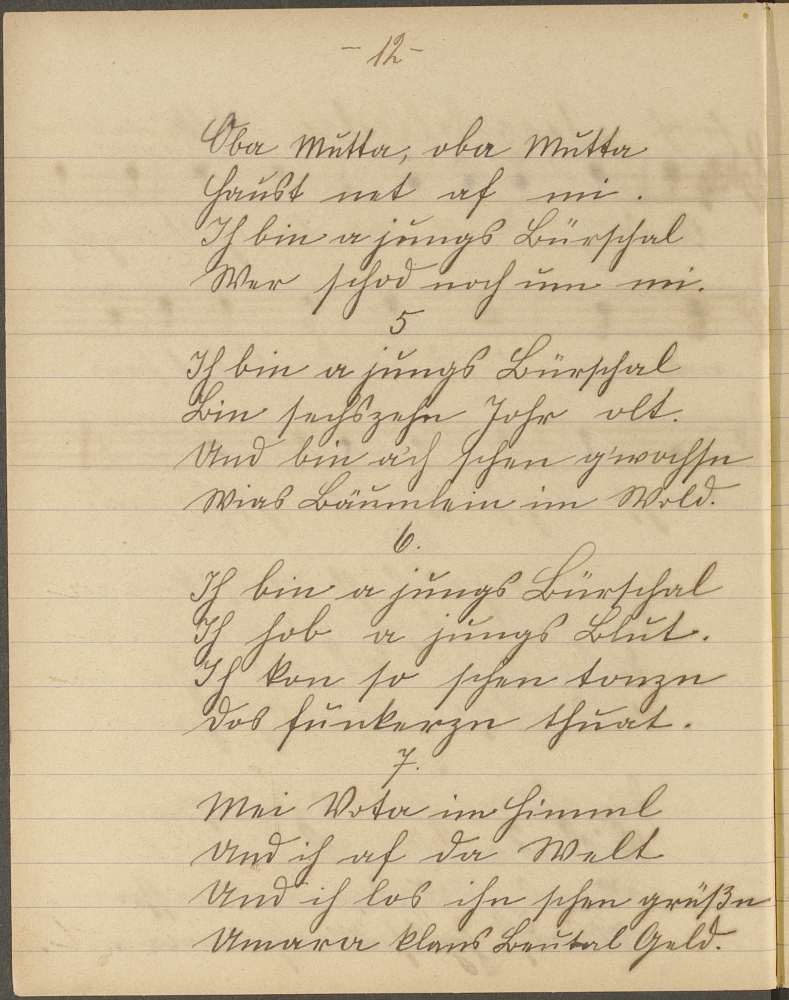 - 12 -
Oba Mutta, oba Mutta
Haust net af mi.
Ich bin a jungs Bürschal
Wer schod noch um mi.
5
Ich bin a jungs Bürschal
Bin sechszehn Johr olt.
Und bin ach schen g'wochsn
Wias Bäumlein im Wold.
6.
Ich bin a jungs Bürschal
Ich hob a jungs Blut.
Ich kon so schen tonzn
Dos funkerzn thuat.
7.
Mei Vota im Himml
Und ich af da Welt
Und ich los ihn schen grüßn
Umara klans Beutal Geld.